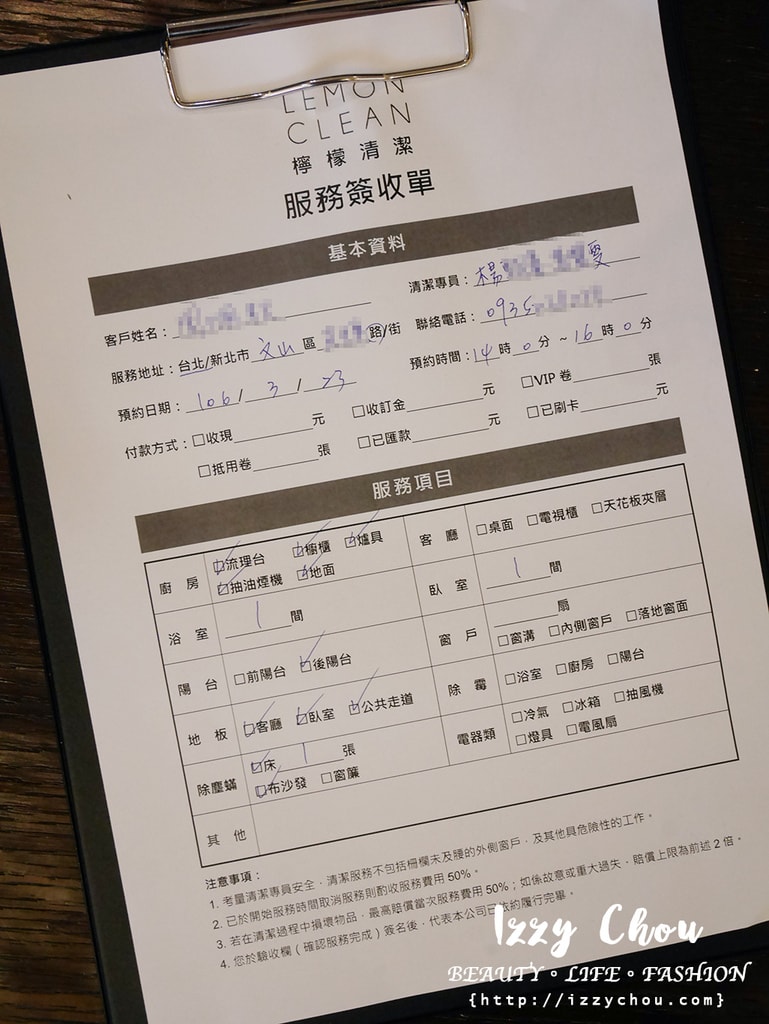 LEMON
CLEAN
檸檬清潔
服務簽收單
基本資料
客戶姓名：
清潔專員：楊 雯
服務地址：台北/新北市 文山 區 路/街
聯絡電話：0935
預約日期：106/3/23
預約時間：14時0分～16時0分
付款方式：□收現____元 □收訂金____元 □VIP卷____張
□抵用卷____張 □已匯款____元 □已刷卡____元
服務項目
廚房 ☑流理台 ☑櫥櫃 ☑爐具
☑抽油煙機 ☑地面
客廳 □桌面 □電視櫃 □天花板夾層
浴室 1間
臥室 1間
陽台 □前陽台 ☑後陽台
窗戶 ____扇
□窗溝 □內側窗戶 □落地窗面
地板 ☑客廳 ☑臥室 ☑公共走道
除霉 □浴室 □廚房 □陽台
除塵蟎 ☑床 1張
☑布沙發 □窗簾
電器類 □冷氣 □冰箱 □抽風機
□燈具 □電風扇
其他
注意事項：
1. 考量清潔專員安全，清潔服務不包括柵欄未及腰的外側窗戶，及其他具危險性的工作。
2. 已於開始服務時間取消服務則酌收服務費用50%。
3. 若在清潔過程中損壞物品，最高賠償當次服務費用50%；如係故意或重大過失，賠償上限為前述2倍。
4. 您於驗收欄（確認服務完成）簽名後，代表本公司已依約履行完畢。
Izzy Chou
BEAUTY。LIFE。FASHION
{http://izzychou.com}